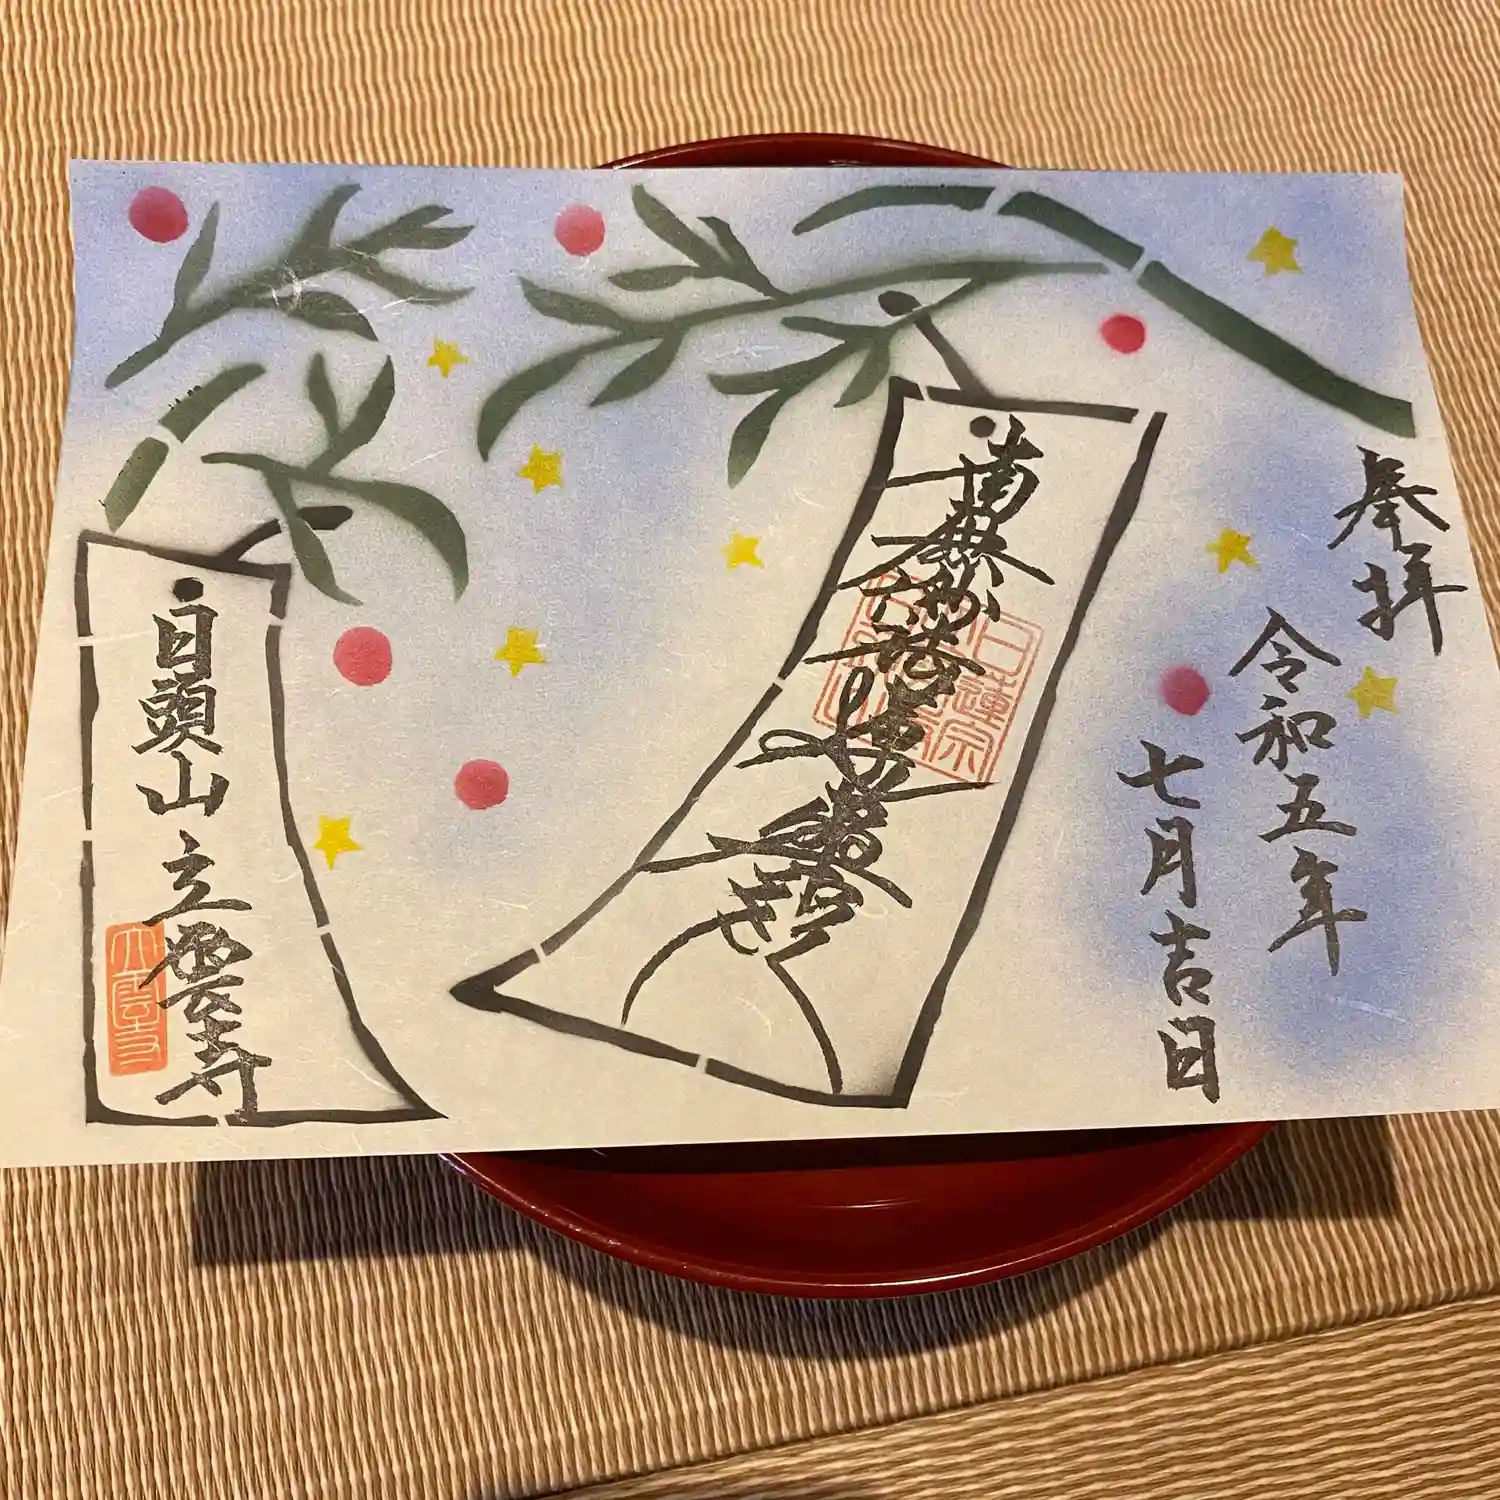 奉拝
令和五年
七月吉日
南無妙法蓮華経
日蓮宗
白頭山 立雲寺
立雲寺